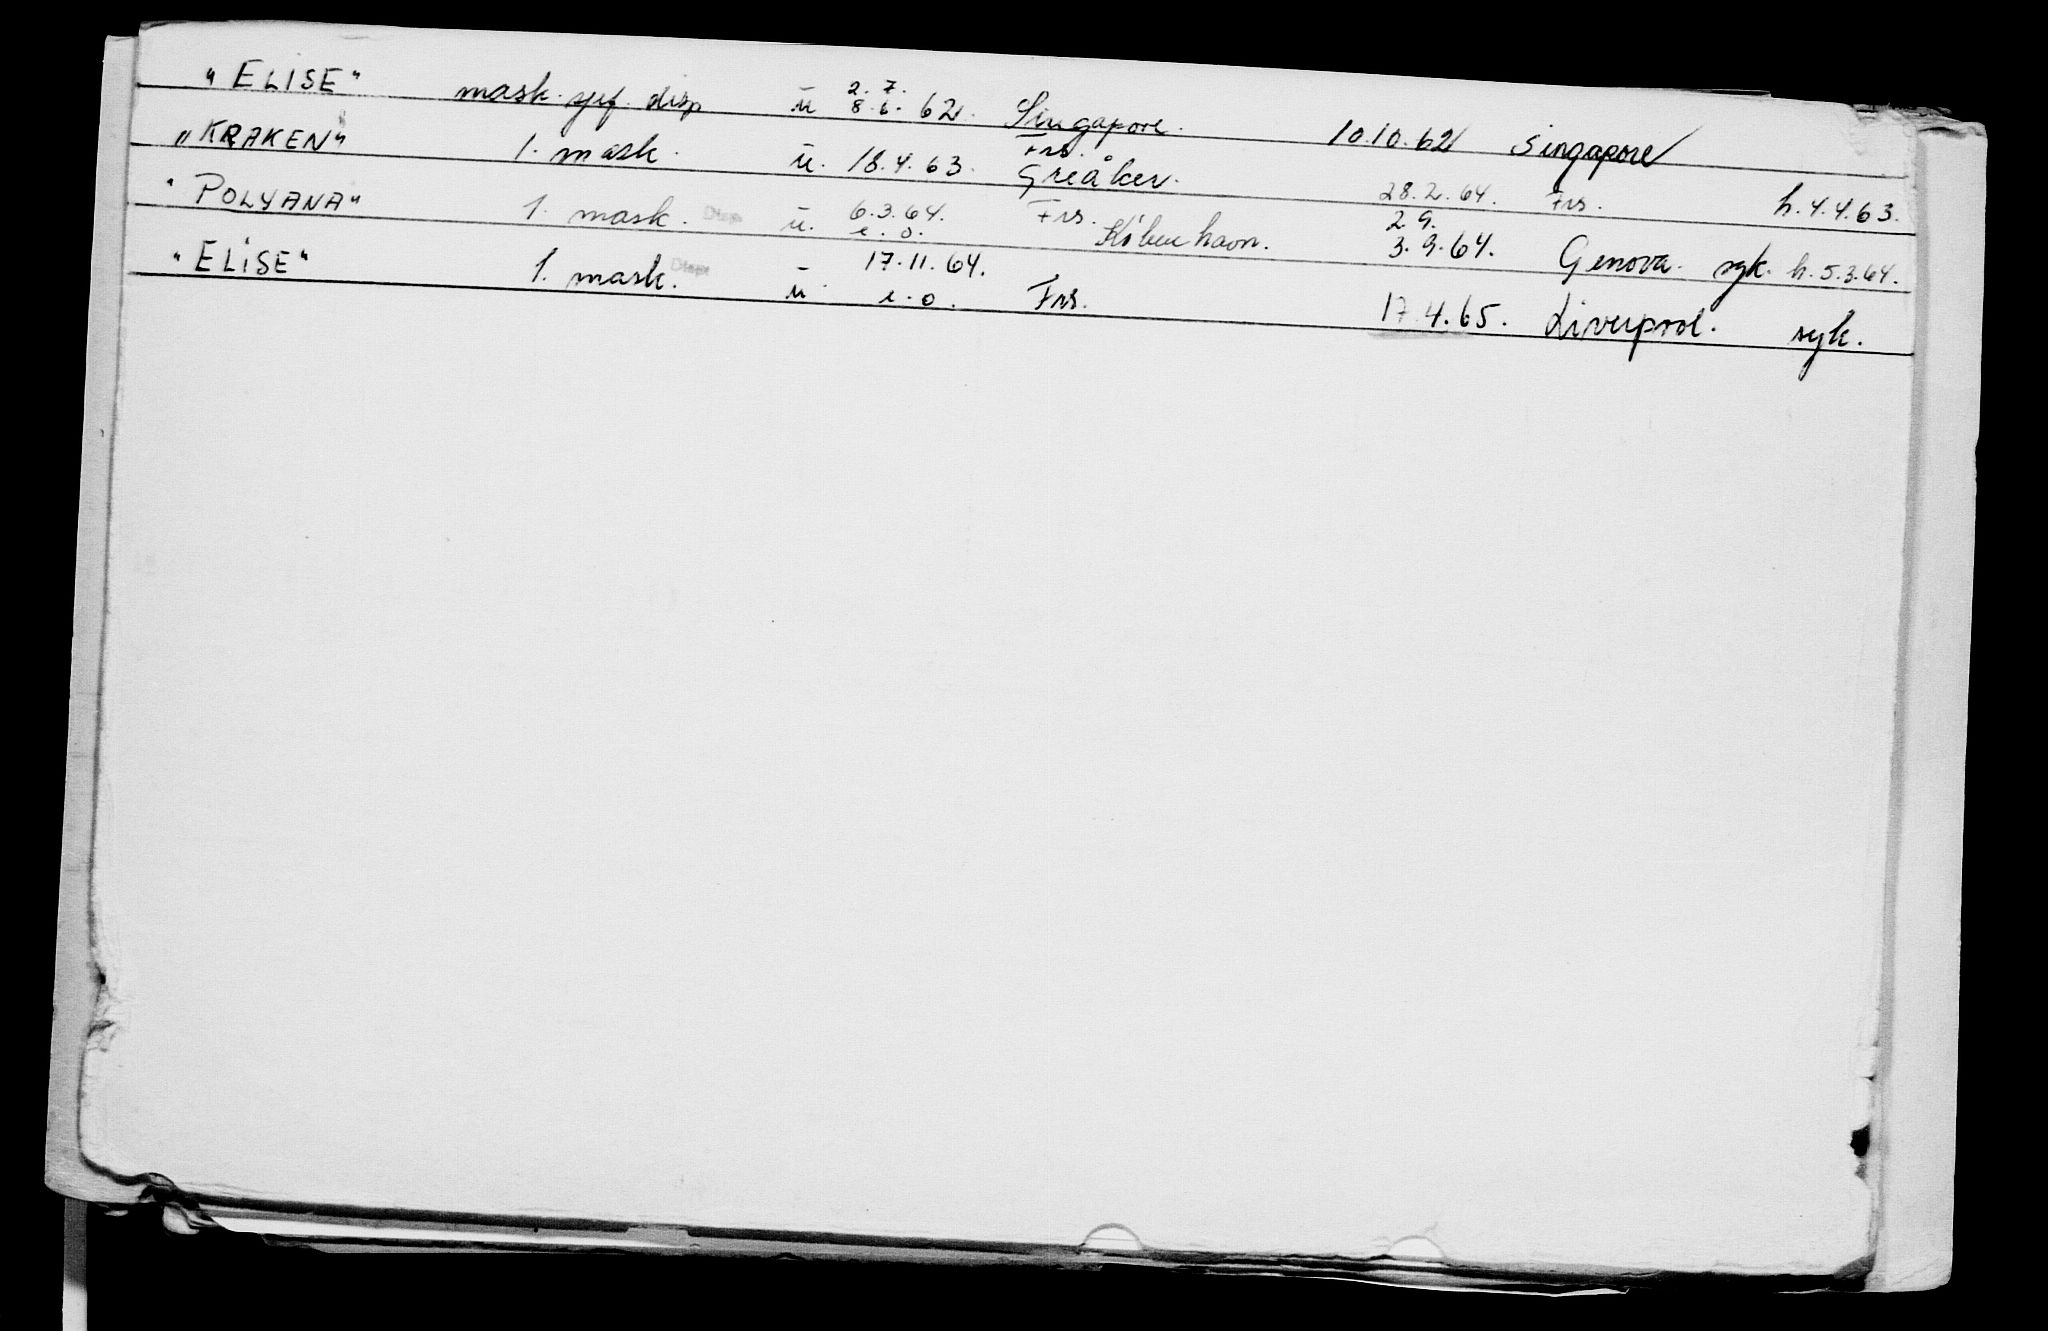 "ELISE" mask. sjef. disp u 2.7. 8.6. 62. Singapore. 10.10.62 Singapore
"KRAKEN" 1. mask. u. 18.4.63. Frs. Greåker. 28.2.64. Frs. h.4.4.63.
"POLYANA" 1. mask. Disp u. 6.3.64. e.o. Frs. København. 2.9. 3.9.64. Genova. syk. h.5.3.64.
"ELISE" 1. mask. Disp u 17.11.64. e.o. Frs. 17.4.65. Liverpool. syk.